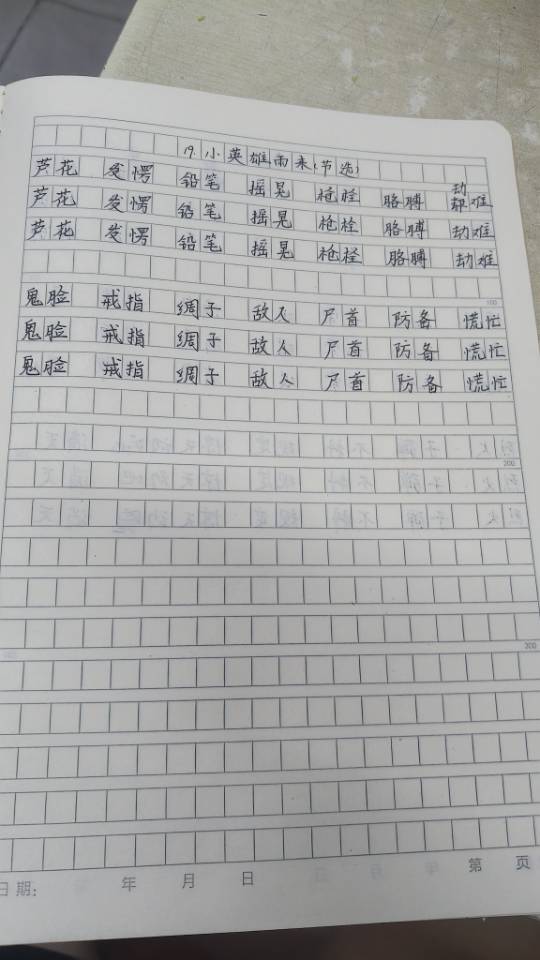 19.小英雄雨来(节选)
芦花 发愣 铅笔 摇晃 枪栓 胳膊 劫难
芦花 发愣 铅笔 摇晃 枪栓 胳膊 劫难
芦花 发愣 铅笔 摇晃 枪栓 胳膊 劫难
100
鬼脸 戒指 绸子 敌人 尸首 防备 慌忙
鬼脸 戒指 绸子 敌人 尸首 防备 慌忙
鬼脸 戒指 绸子 敌人 尸首 防备 慌忙
200
300
日期: 年 月 日 第 页